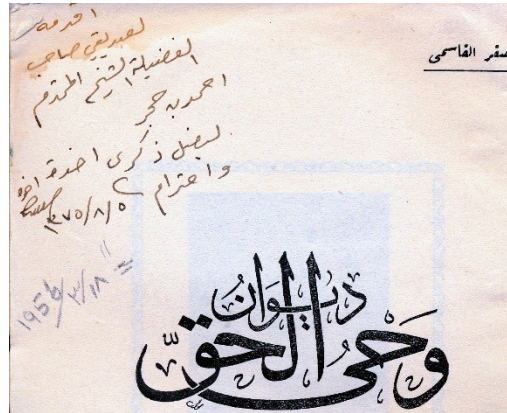 صقر القاسمى
اقدمه
لصديقي صاحب
الفضيلة الشيخ المحترم
احمد بن حجر
ليضل ذكرى اخوة
واحترام
١٣٧٥/٨/٥
١٩٥٦/٣/١٨
ديوان
وحى الحق